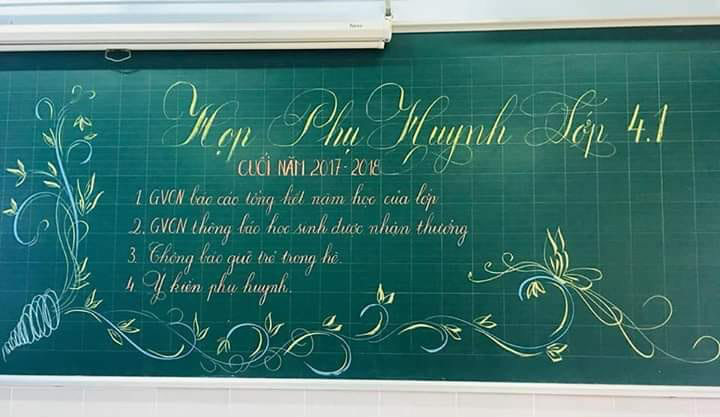 Họp Phụ Huynh Lớp 4.1
CUỐI NĂM 2017-2018
1. GVCN báo cáo tổng kết năm học của lớp
2. GVCN thông báo học sinh được nhận thưởng
3. Thông báo giữ trẻ trong hè.
4. Ý kiến phụ huynh.